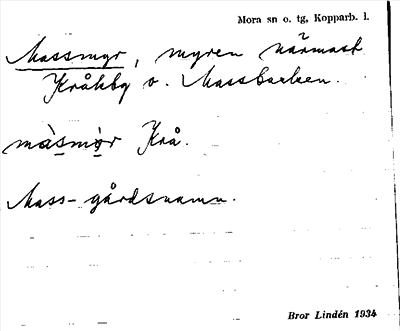 Mora sn o. tg, Kopparb. l.
Massmyr, myren närmast
Kråkbg o. Massbacken.
màsmỳr Krå.
Mass- gårdsnamn.
Bror Lindén 1934